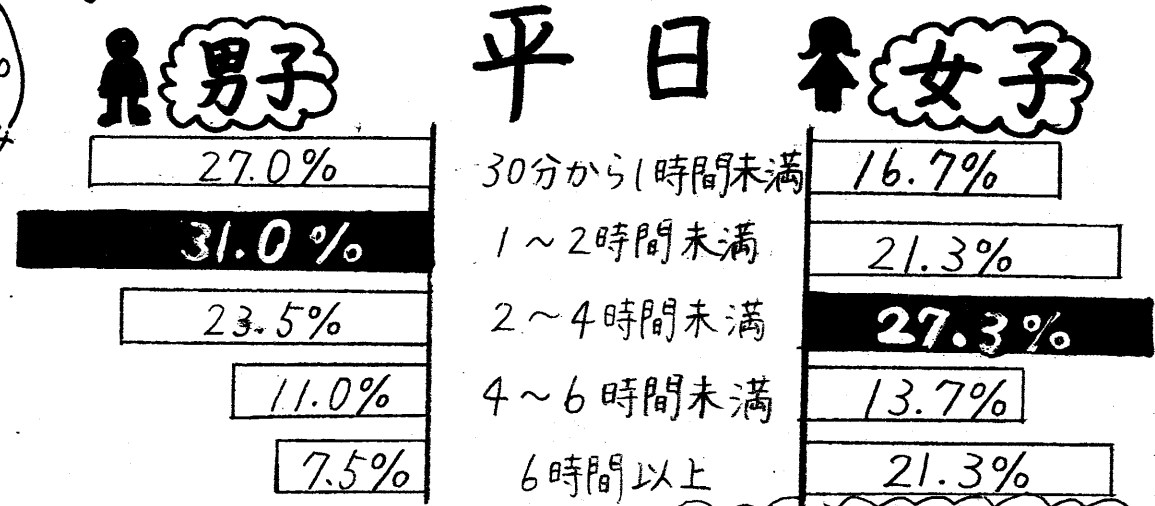 男子 平日 女子
27.0% 30分から1時間未満 16.7%
31.0% 1～2時間未満 21.3%
23.5% 2～4時間未満 27.3%
11.0% 4～6時間未満 13.7%
7.5% 6時間以上 21.3%